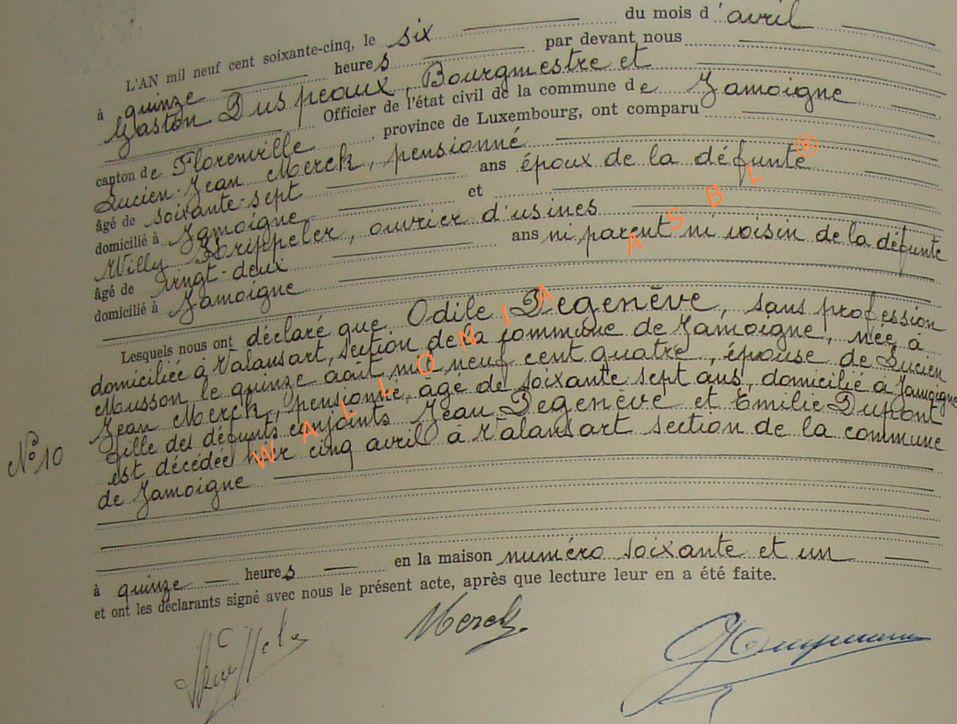 L'AN mil neuf cent soixante-cinq, le six du mois d'avril
à quinze heures par devant nous
Gaston Duspeaux, Bourgmestre et
Officier de l'état civil de la commune de Jamoigne
canton de Florenville, province de Luxembourg, ont comparu
Lucien-Jean Merch, pensionné
âgé de soixante-sept ans époux de la défunte
domicilié à Jamoigne et
Willy ouvrier d'usines
âgé de vingt-deux ans ni parent ni voisin de la défunte
domicilié à Jamoigne
Lesquels nous ont déclaré que Odile Degenève, sans profession
domiciliée à Valansart, section de la commune de Jamoigne, née à
Musson le quinze août mil neuf cent quatre, épouse de Lucien
Jean Merch, pensionné, âgé de soixante sept ans, domicilié à Jamoigne
fille des défunts conjoints Jean Degenève et Emilie Dupont
N° 10
est décédée hier cinq avril à Valansart section de la commune
de Jamoigne
à quinze heures en la maison numéro soixante et un
et ont les déclarants signé avec nous le présent acte, après que lecture leur en a été faite.
Merch
WALLONIA ASBL ®